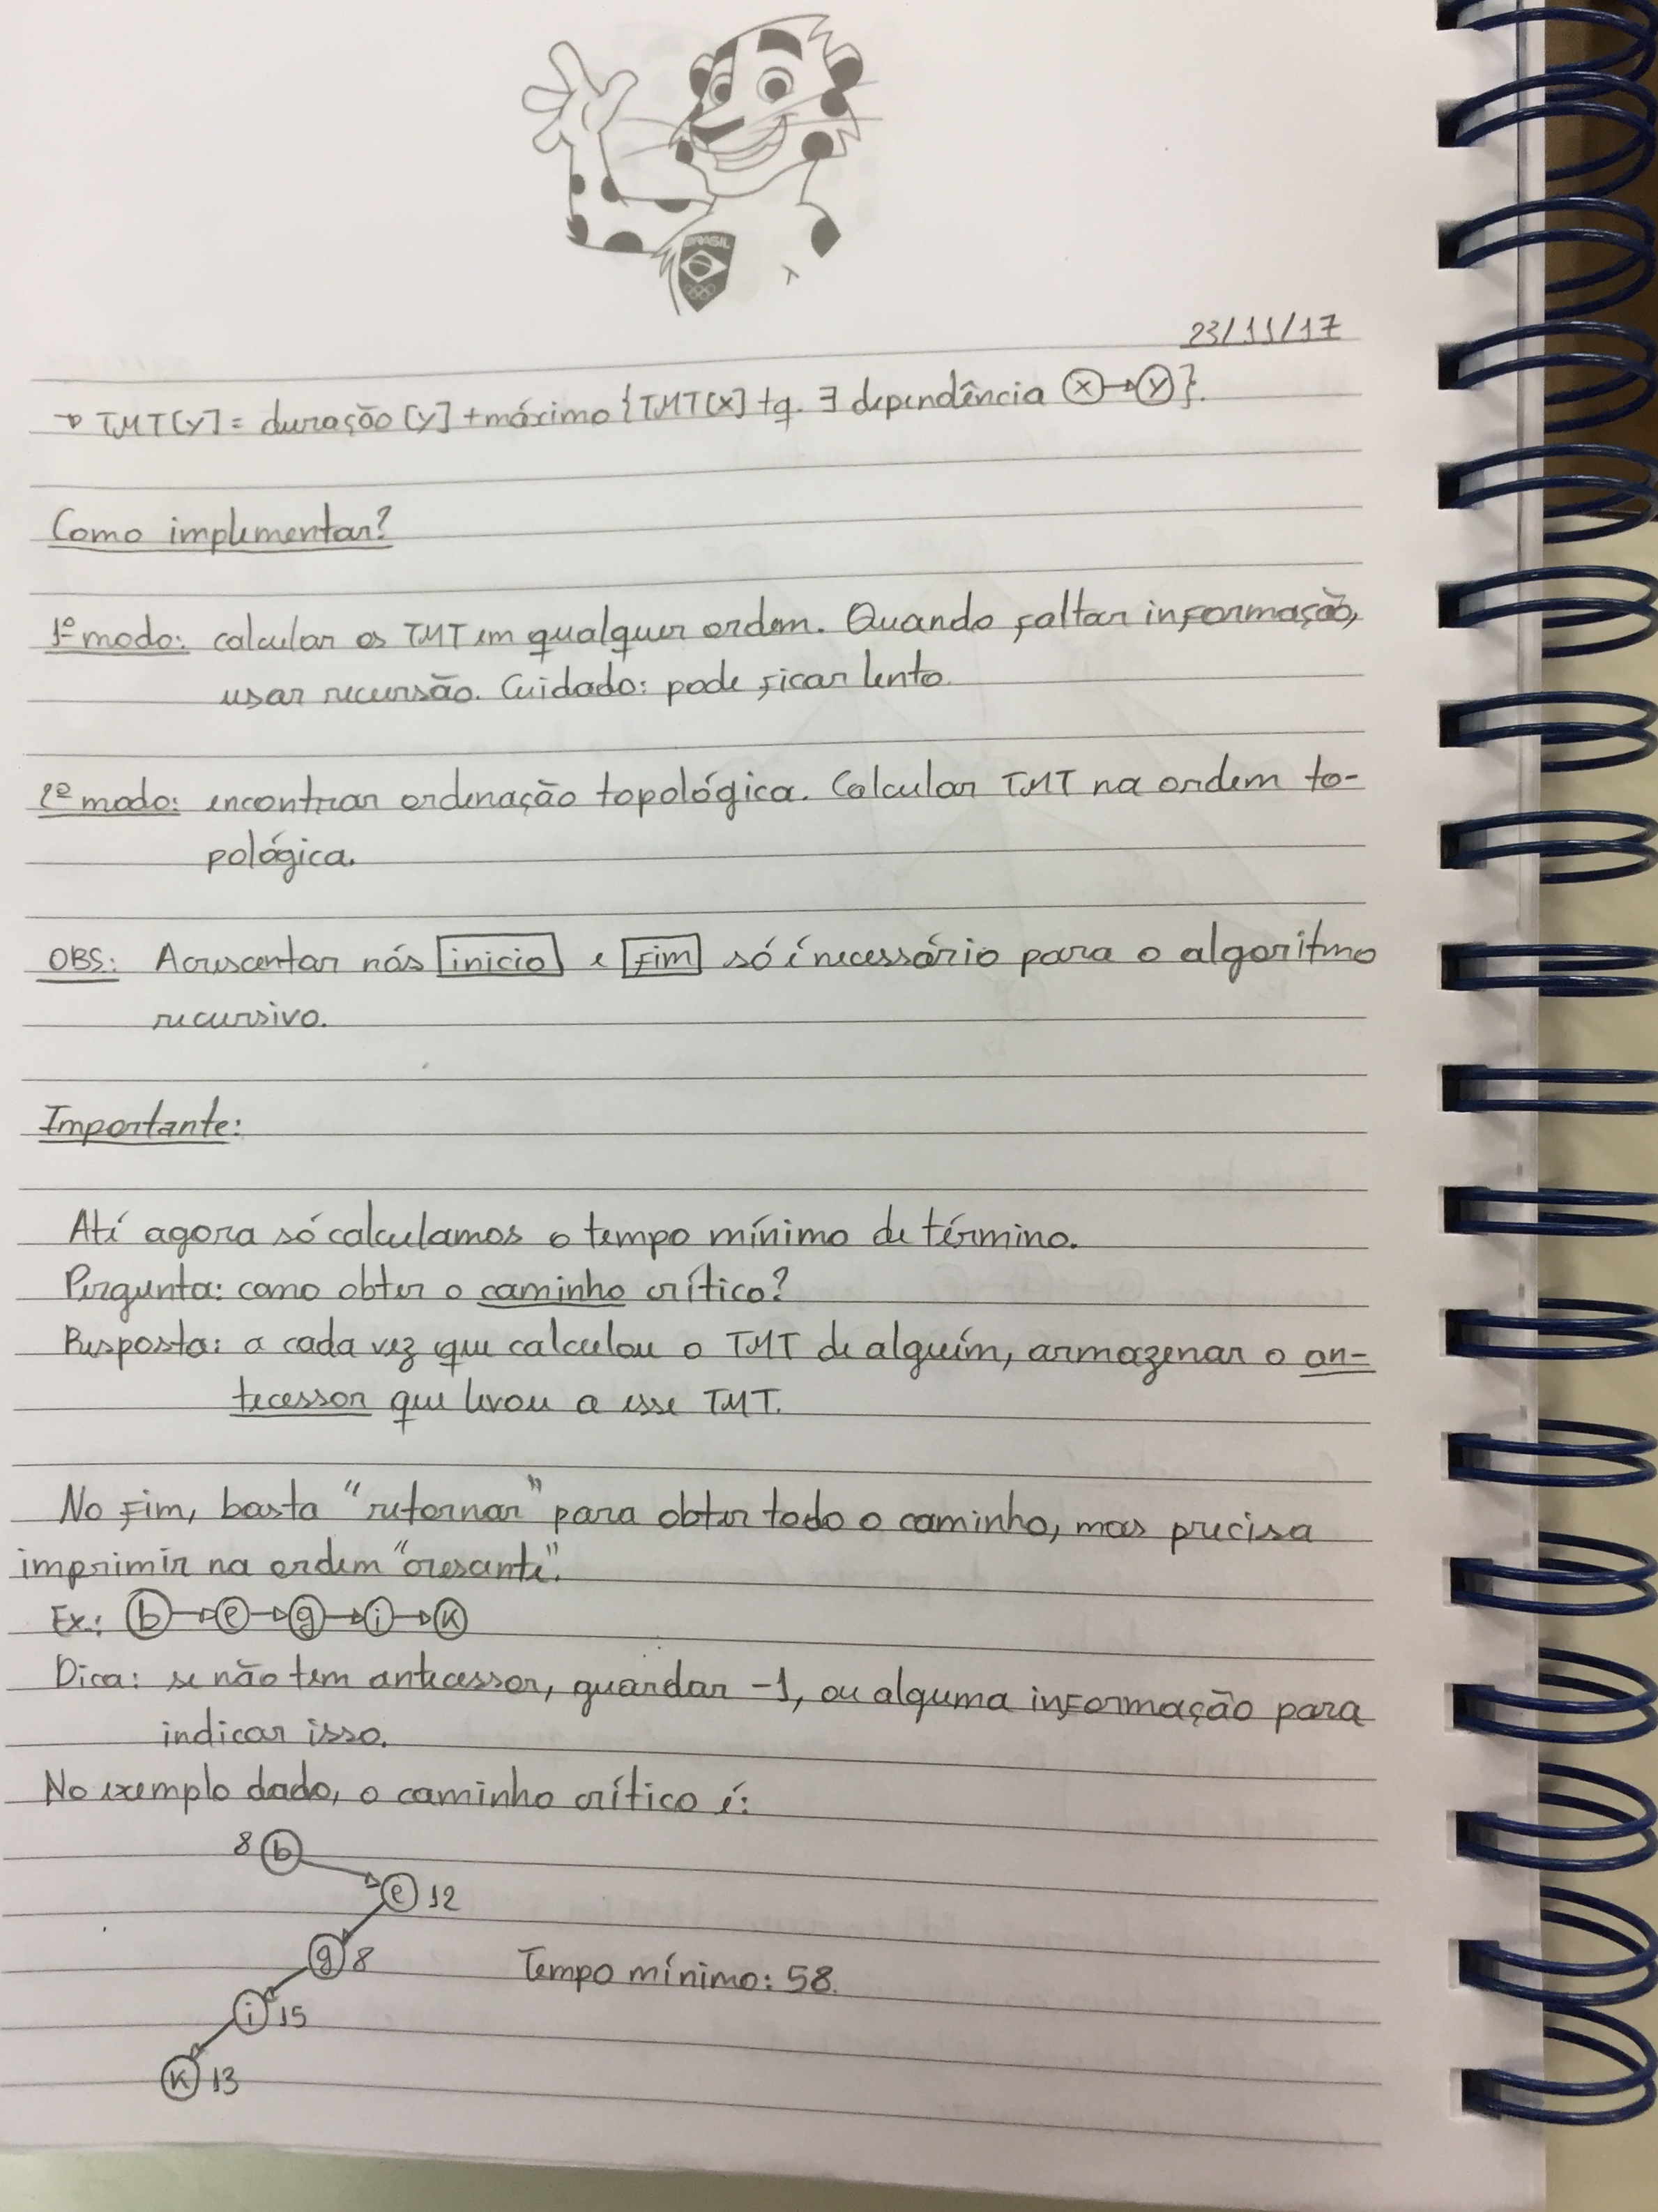 BRASIL
23/11/17
→ TMT[y] = duração [y] + máximo {TMT[x] tq. ∃ dependência ⓧ→ⓨ}.
Como implementar?
1º modo: calcular os TMT em qualquer ordem. Quando faltar informação,
usar recursão. Cuidado: pode ficar lento.
2º modo: encontrar ordenação topológica. Calcular TMT na ordem to-
pológica.
OBS: Acrescentar nós inicio e fim só é necessário para o algoritmo
recursivo.
Importante:
Até agora só calculamos o tempo mínimo de término.
Pergunta: como obter o caminho crítico?
Resposta: a cada vez que calculou o TMT de alguém, armazenar o an-
tecessor que levou a esse TMT.
No fim, basta "retornar" para obter todo o caminho, mas precisa
imprimir na ordem "cresante".
Ex.: ⓑ→ⓔ→ⓖ→ⓘ→ⓚ
Dica: se não tem antecessor, guardar -1, ou alguma informação para
indicar isso.
No exemplo dado, o caminho crítico é:
8 ⓑ
ⓔ 12
ⓖ 8
Tempo mínimo: 58.
ⓘ 15
ⓚ 13